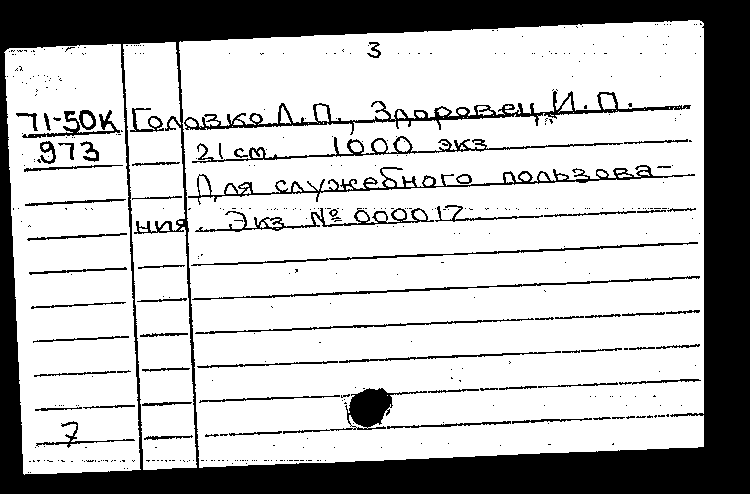 3
71-50К Головко Л.П., Здоровец И.П.
973 21 см. 1000 экз
Для служебного пользова-
ния. Экз № 000017
7